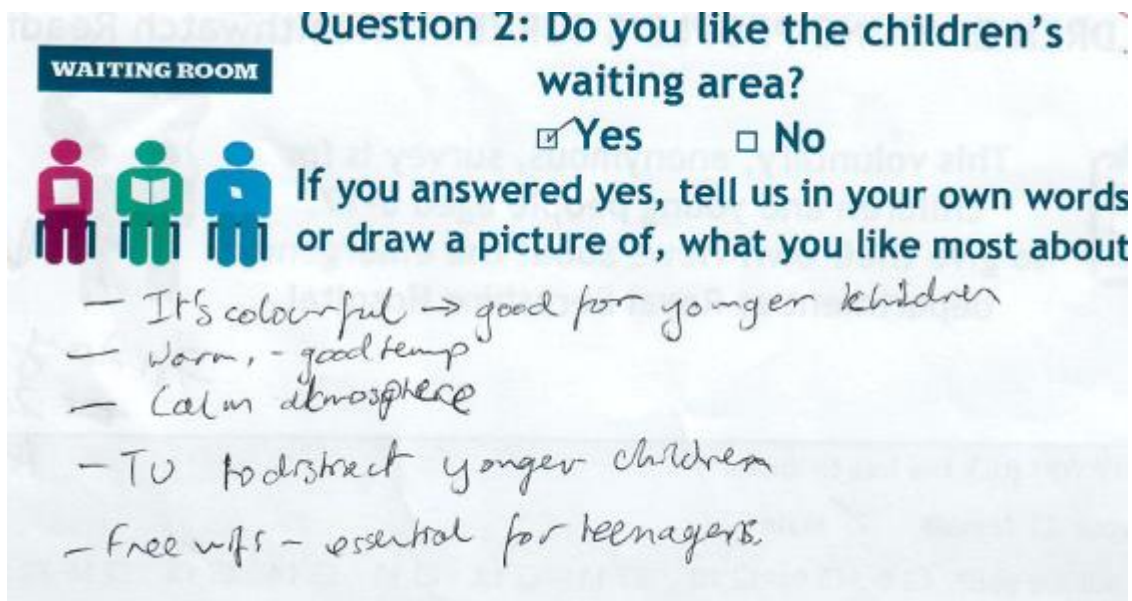 Question 2: Do you like the children's
WAITING ROOM
waiting area?
Yes No
If you answered yes, tell us in your own words
or draw a picture of, what you like most about
- It's colourful → good for younger children
- Warm, - good temp
- Calm atmosphere
- TV to distract yonger children
- Free wifi - essential for teenagers.